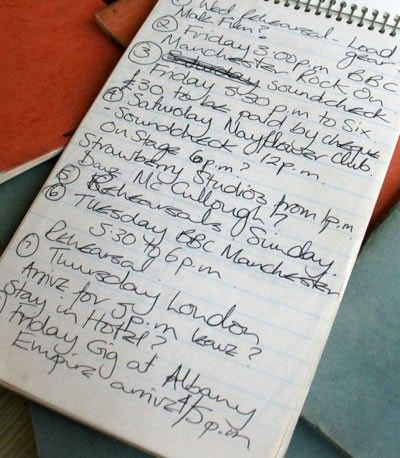 ① Wed Rehearsal Load
Make Film? gear?
② Friday 3.00p.m. BBC
Manchester Rock On
③ Friday 5.30 p.m to Six
Soundcheck
£30 to be paid by cheque
④ Saturday Mayflower Club.
Soundcheck 12p.m.
On Stage 6p.m.?
Strawberry Studios from 1p.m
Dave McCullough?
⑤ Rehearsals Sunday.
⑥ Tuesday BBC Manchester
5:30 to 6p.m.
Rehearsal
⑦ Thursday London
Arrive for 5p.m leave?
Stay in Hotel?
Friday Gig at Albany
Empire arrive 4/5p.m